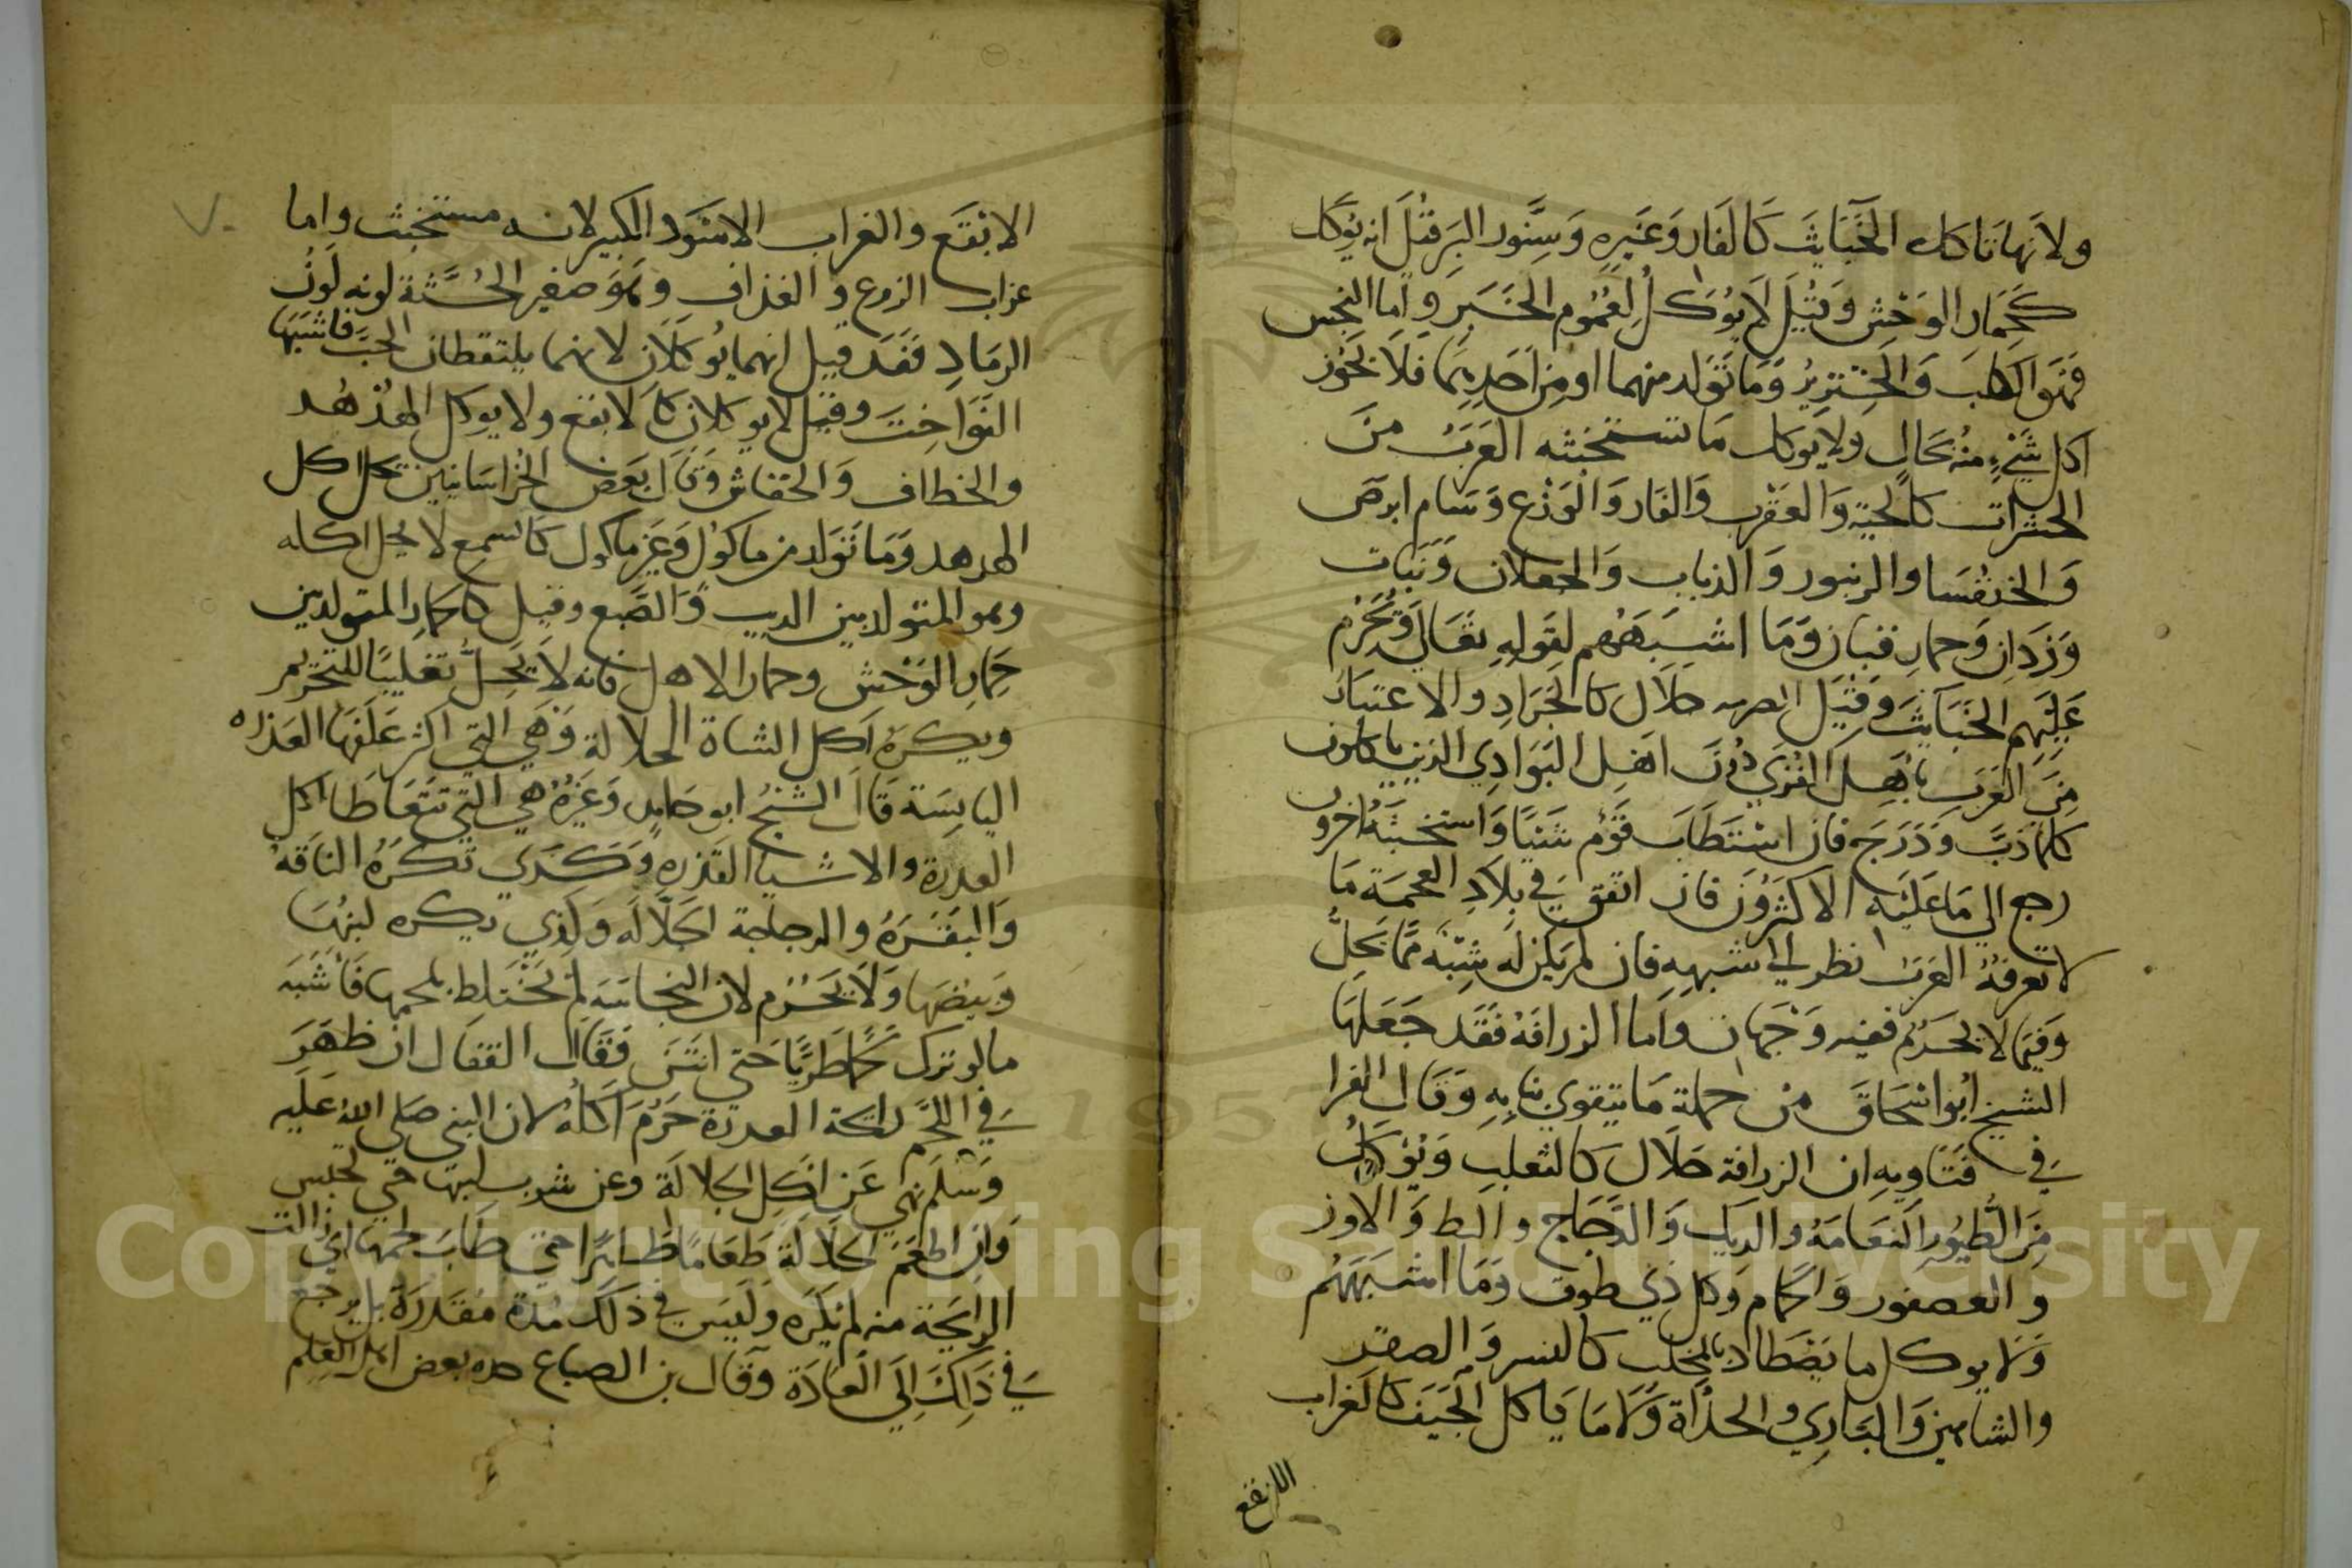 ولانها تاكل الخَبَايثَ كَالفَار وَغَيرِهِ وَسِنَّور البَر قيْلَ انه يُوكَل
كَحِمَار الوَحْشِ وَقيْلَ لَا يُوكَلُ لِعُمُوم الخَبَر وَاما النجس
فَهْوَ الكلبَ وَالخِنْزِيرُ وَمَا تَوَلد منهما او مِن احَدِهِمَا فَلَا يَجُوز
اكل شَيْءٍ مِنْهُ بحَالٍ ولا يوكل مَا تستخبثه العَربُ منَ
الحشرات كالحيَّة وَالعَقْرب وَالفَار وَالوَزْغ وَسَام ابرص
وَالخنفُسَا والزنبور وَالذباب وَالجعلان وَنَبَات
وَرْدَانِ وَحمارِ قبان وَمَا اشبَهَهُم لقَولِهِ تَعَالَى وَيُحَرِّم
عَلَيْهِم الخَبَايثَ وَقيْلَ الصرصر حَلَال كالجَرَادِ والاعتبَارُ
مِنَ العَرَبِ باهْلِ القُرَي دُونَ اهْلِ البَوَادِي الذين ياكلون
كلمَا دَبَّ وَدَرَج فان اسْتَطَابَ قَوْم شَيْئًا وَاستخبثَهُ اخرون
رجع الي مَا عَلَيْه الاكثَرُونَ فان اتفق في بِلَادِ العجمَة مَا
لا تعرفَهُ العَرَبُ نظر الي اشبهِهِ فان لم يَكن لَه شِبْهٌ مِمَّا يَحِلُّ
وَفيمَا لا يَحرُم ففيه وَجهَان وَاما الزرافَهُ فَقَد جَعَلَهَا
الشيخ ابُو اسْحَاقَ مِن جملة مَا يتقوي بنابِهِ وَقَال الفرا
في فَتَاويهِ ان الزرافة حَلَال كالثعلب وَيُوكَلُ
مِنَ الطُيُورِ النَعَامَةُ والديك وَالدَّجَاج والبط وَالاوز
والعصفور وَالحَمام وَكل ذِي طوق وَمَا اشبَهَهُم
وَلَا يوكل ما يَصْطاد بالمِخلَب كالنسر وَالصقر
والشاهين وَالبَازِي وَالحدأة وَلَا مَا يَاكل الجَيَفَ كالغراب
الابقع
الابْقَع والغراب الاسْوَد الكبير لانه مستخبث واما
غراب الزرع والغداف وَهُوَ صغير الجُثَّة لونه لَونُ
الرمَادِ فَقَد قيل انهما يُوكلان لانهما يلتقطان الحَبَّ فاشبَهَا
الفَوَاختَ وقيْل لا يوكلان كَالابقع ولا يوكل الهُدْهُد
والخطاف وَالخفاش وَقَال بَعْض الخُراسَانيين يَحل اكل
الهدهد وَمَا تَوَلد من ماكول وَغَير ماكول كالسمع لا يَحل اكله
وهو المتولد بين الديب وَالضَّبع وقيل كالحمار المتولد بين
حِمَارِ الوَحْشِ وحمار الاهل فانه لا يَحِلُّ تَغليبًا للتحريم
ويكرَهُ اكل الشاة الجلالة وَهي التي اكثر عَلَفِهَا العَذره
اليابسَة قَالَ الشيْخُ ابو حَامِد وَغَيرُهُ هي التي تتعَاطَا اكل
العدرة والاشيا القَذِرهِ وَكذي تكرَهُ النَاقَةُ
وَالبَقَرَهُ والدجاجة الجَلَّالَه وَكَذي يكره لبنُهَا
وَبيضهَا وَلَا يَحْرُم لان النجاسَة لم تَختَلط بلحمها فَاشبَه
مالو ترك لَحْمًا طَرِيًّا حَتي انتَنَ فقَالَ القفال ان ظهَرَ
في اللَّحْم رائحة العدرة حَرُمَ اكلُهُ لان النبي صَلي اللهُ عَلَيه
وَسَلَم نَهي عَن اكل الجلالَة وعن شرب لبنها حَتي تحبس
وَان اطعَمَ الجَلَالة طَعَامًا طاهرًا حَتي طَابَ لحمها اي زالت
الرائِحَة منه لم يُكرَه وَلَيسَ في ذلكَ مُدة مقدَّرَة بل يرجع
في ذَلِكَ اليَ العَادَة وَقَال بن الصباع بعض اهل العِلم